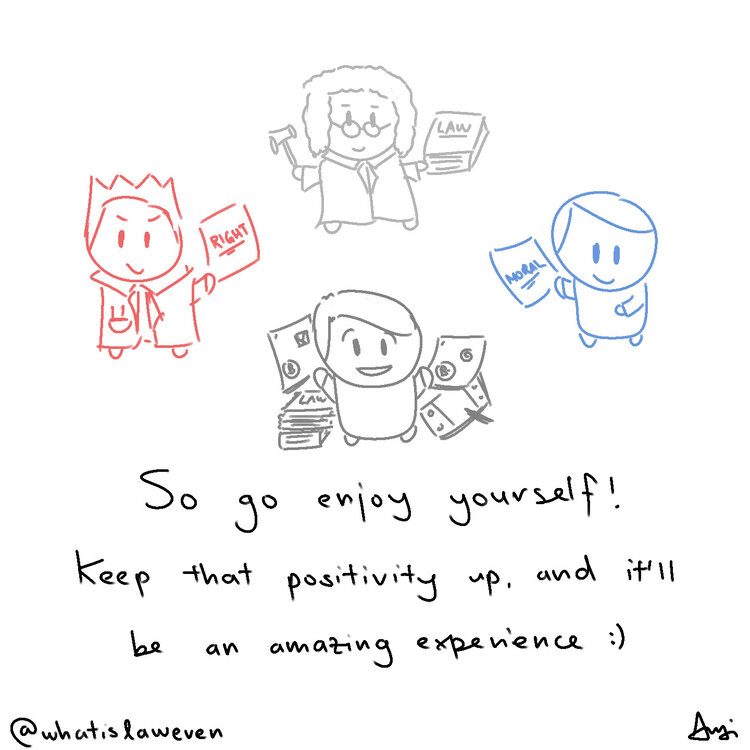 LAW
RIGHT
MORAL
LAW
So go enjoy yourself!
Keep that positivity up, and it'll
be an amazing experience :)
@whatislaweven